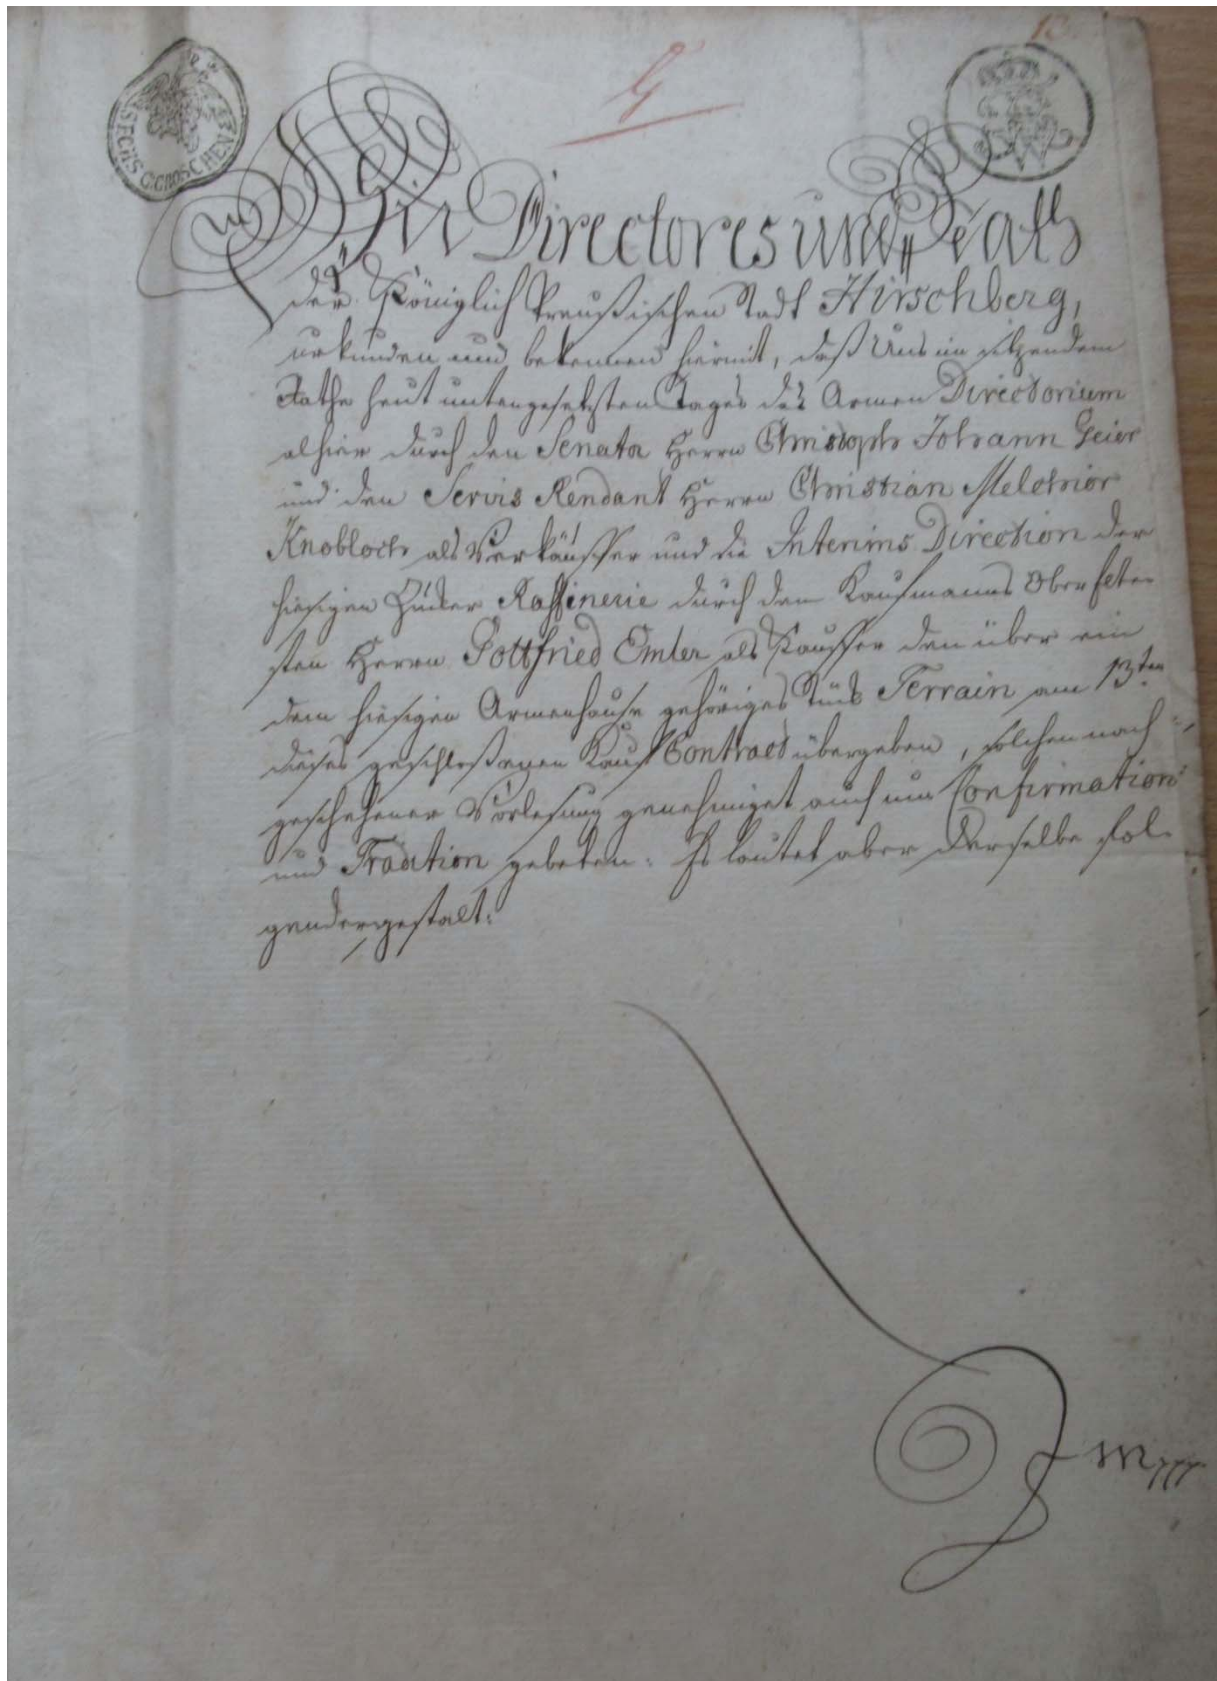 13
G
SECHS G. GROSCHEN
Wir Directores und Rath
der Königlich Preußischen Stadt Hirschberg,
urkunden und bekennen hiermit, daß Uns im sitzendem
Rathe heut untengesetzten Tages das Armen Directorium
alhier durch den Senator Herrn Christoph Johann Geier
und den Servis Rendant Herrn Christian Melchior
Knobloch als Verkäuffer und die Interims Direction der
hiesigen Zucker Raffinerie durch den Kaufmanns Oberselte-
sten Herrn Gottfried Emler als Kauffer den über ein
dem hiesigen Armenhause gehöriges Stück Terrain am 13ten
dieses geschloßenen Kauf Contract übergeben, solchen nach
geschehener Vorlesung genehmiget auch um Confirmation
und Tradition gebeten: Es lautet aber derselbe fol-
gendergestalt: